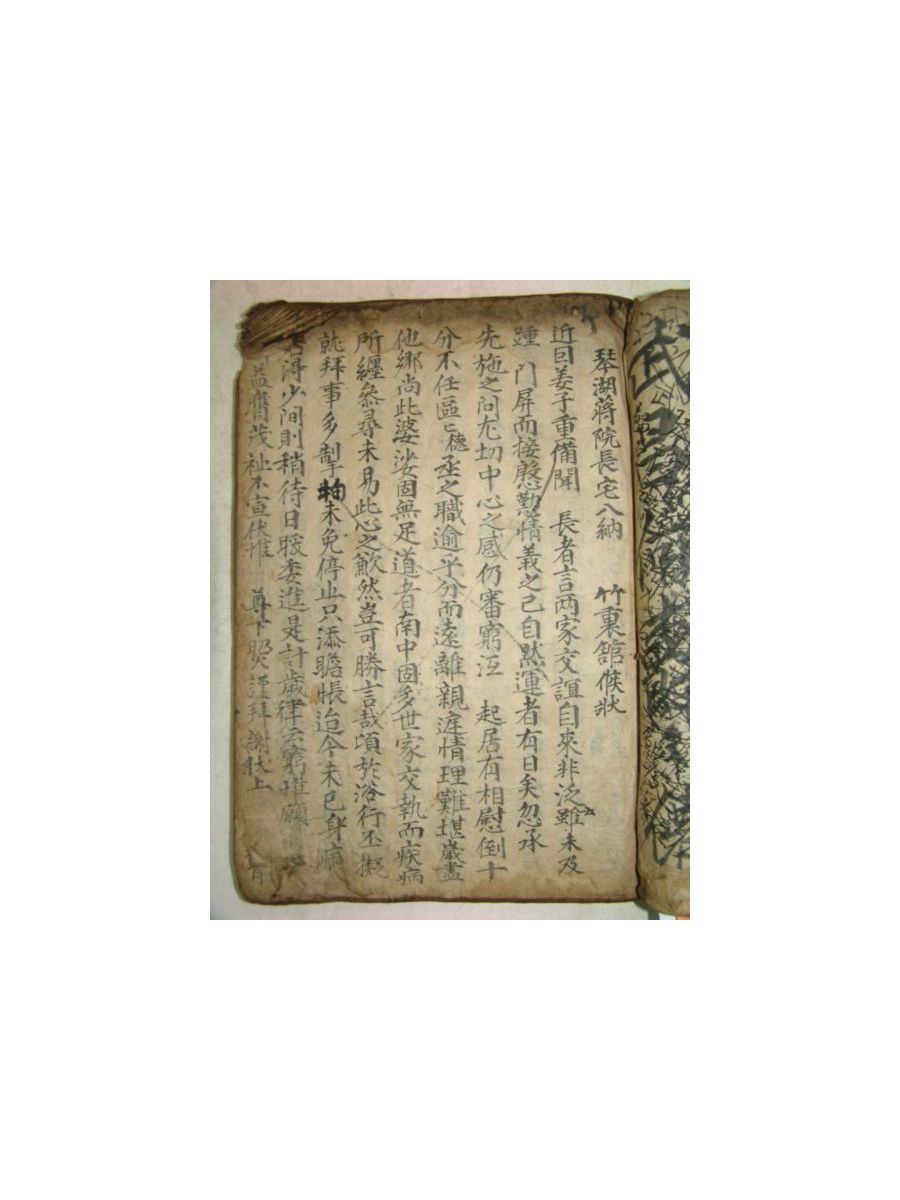 琴湖蔣院長宅入納 竹裏舘候狀
近因姜子重備聞 長者言两家交誼自來非泛雖未及
踵 門屏而接慇懃情義之已自默運者有日矣忽承
先施之问尤切中心之感仍審窮冱 起居有相慰倒十
分不任區〻德丞之職逾乎分而遠離親涯情理難堪歲盡
他鄉尚此婆娑固無足道者南中固多世家交執而疾病
所纏參尋未易此心之歉然豈可勝言哉頃於浴行丕擬
就拜事多掣未免停止只添瞻悵迨今未已身病
得少间則稍待日暖委進是計歲律云窮惟願
益膺茂祉不宣伏惟 尊下照謹拜謝狀上